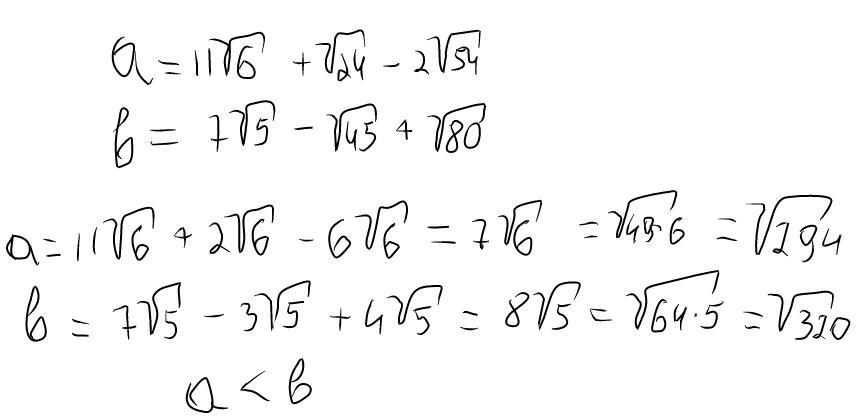 a = 11√6 + √24 - 2√54
b = 7√5 - √45 + √80
a = 11√6 + 2√6 - 6√6 = 7√6 = √49·6 = √294
b = 7√5 - 3√5 + 4√5 = 8√5 = √64·5 = √320
a < b